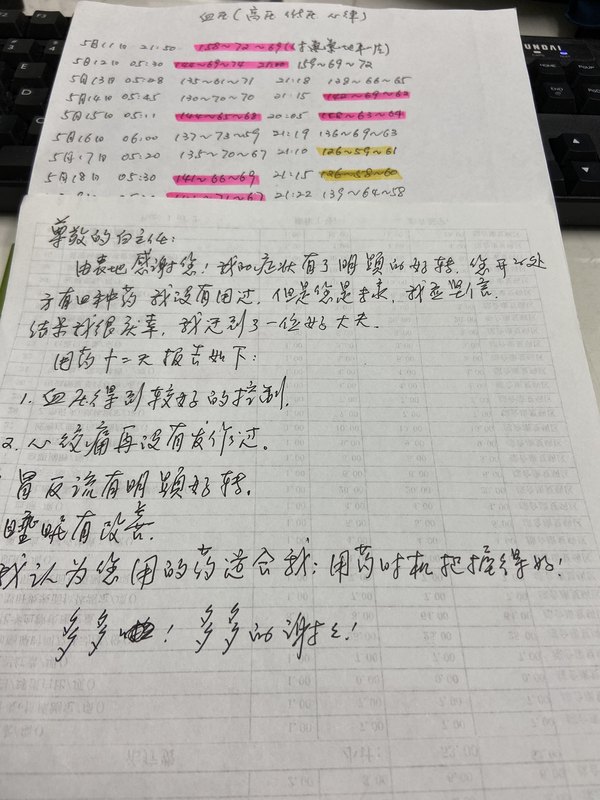 血压(高压 低压 心律)
5月11日 21:50 158~72~69
5月12日 05:30 144~69~74 21:20 159~69~72
5月13日 05:28 135~61~71 21:18 138~66~65
5月14日 05:45 130~70~70 21:15 142~69~62
5月15日 05:11 144~65~68 20:05 158~63~64
5月16日 06:00 137~73~59 21:19 136~69~63
5月17日 05:20 135~70~67 21:10 126~59~61
5月18日 05:30 141~66~69 21:15 126~58~60
141~71~67 21:22 139~64~58
UNDAI
尊敬的白主任:
由衷地感谢您!我的症状有了明显的好转.您开的处
方有四种药我没有用过,但是您是专家,我应坚信.
结果我很庆幸,我遇到了一位好大夫.
用药十二天报告如下:
1.血压得到较好的控制.
2.心绞痛再没有发作过。
胃反流有明显好转.
睡眠有改善.
我认为您用的药适合我;用药时机把握得好!
多多 ! 多多的谢谢!